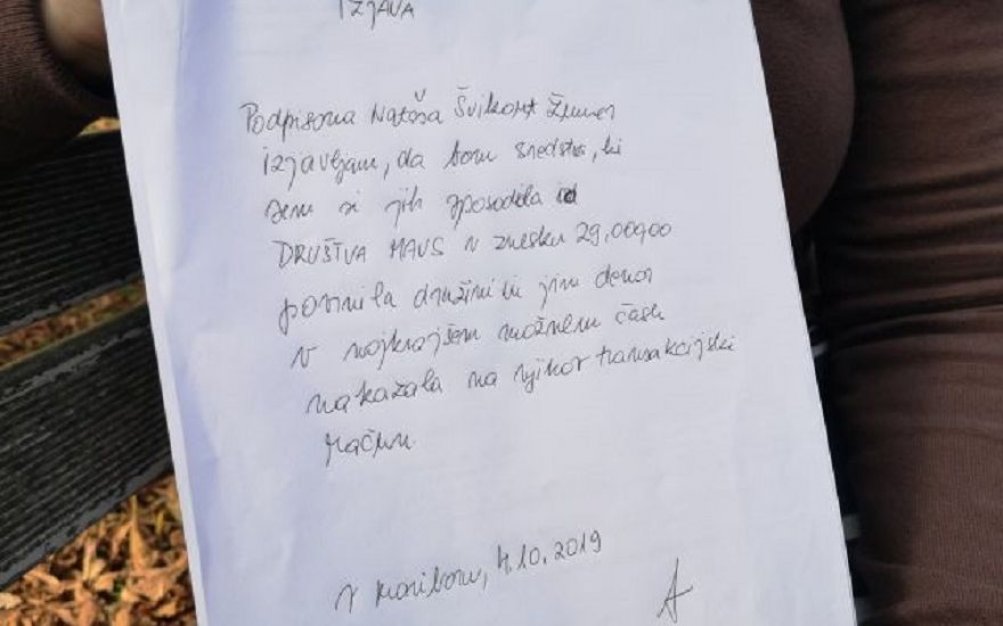 IZJAVA
Podpisana Nataša Švikart Žumer
izjavljam, da bom sredstva, ki
sem si jih sposodila od
DRUŠTVA MAVS v znesku 29,000,00
povrnila družini in jim denar
v najkrajšem možnem času
nakazala na njihov transakcijski
račun.
V Mariboru, 4.10.2019